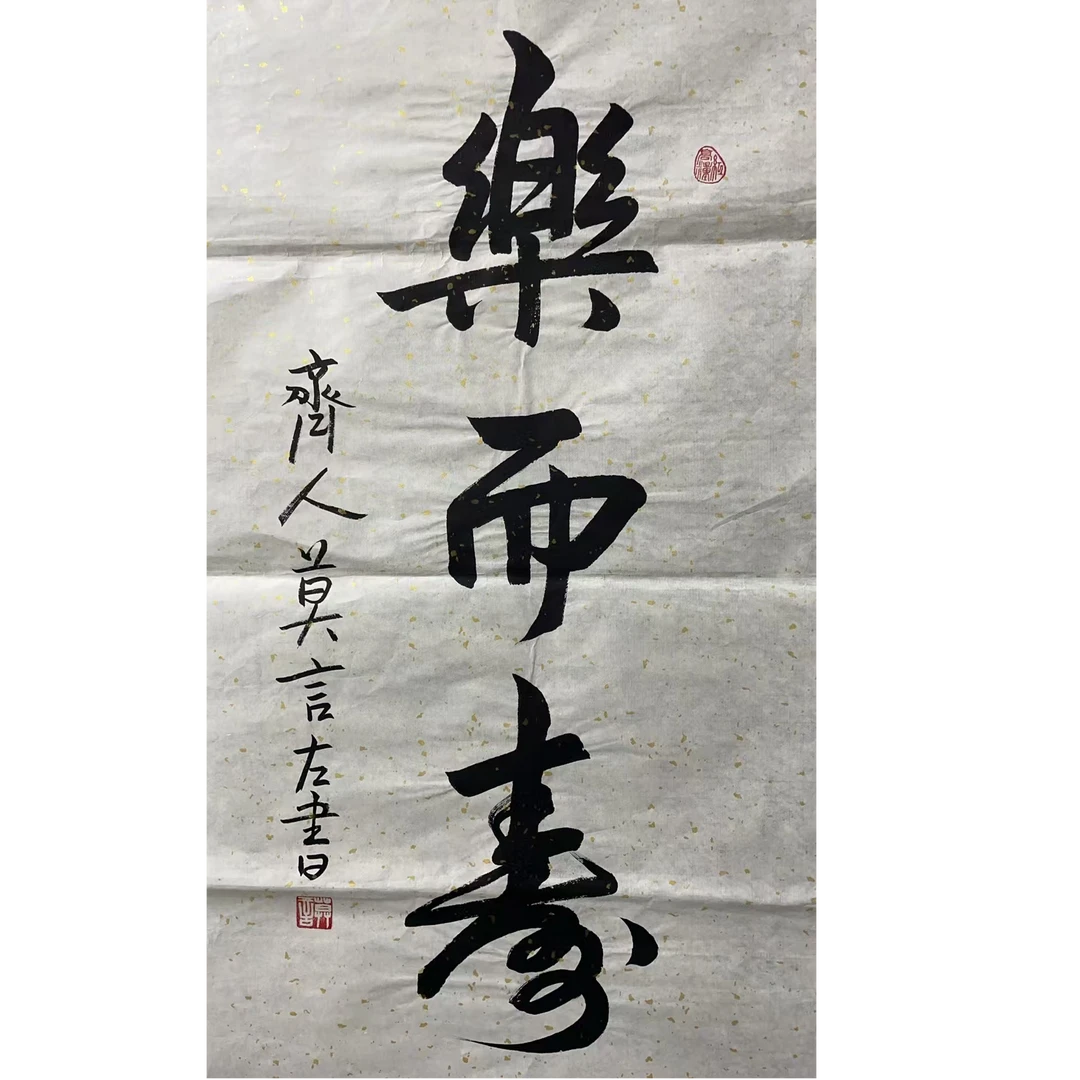 樂而壽
齊人莫言左書
莫言